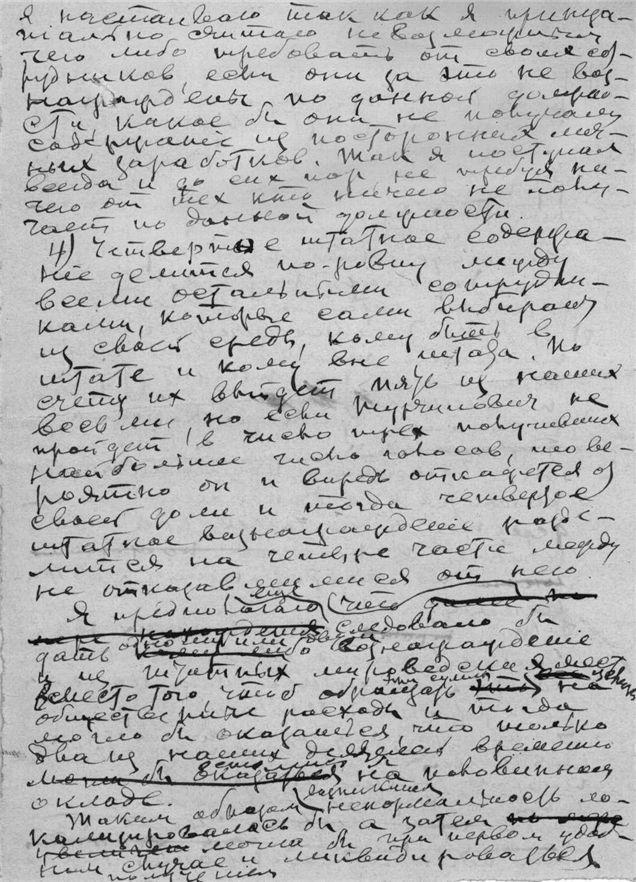 я настаиваю так как я принци-
пиально считаю невозможным
чего либо требовать от своих со-
трудников если они за это не воз-
награждены по данной должно-
сти какое бы они не получали
содержание из посторонних
заработков. Так я поступал
всегда и до сих пор не требуя ни-
чего от тех кто ничего не полу-
чает по данной должности.
4) Четвертое штатное содержа-
ние делится по-ровну между
всеми остальными сотрудни-
ками, которые сами выбирают
из своей среды, кому быть в
штате и кому вне штата. По
счету их выйдет пять из наших
восьми но если не
пройдет в число трех получивших
наибольшее число голосов, то ве-
роятно он и впредь откажется от
своей доли и тогда четвертое
штатное вознаграждение разде-
лится на четыре части между
не отказавшимися от него.
Я предпо еще что
следовало бы
дать одному или двум вознаграждение
и не штатных
вместо того чтоб обращать эти суммы на
общественные расходы и тогда
могло бы оказаться что только
два из наших временно
на половинном
окладе.
Таким образом ненормальность ло-
кализировалась бы а затем
могла бы при первом удоб-
ном случае и ликвидироваться